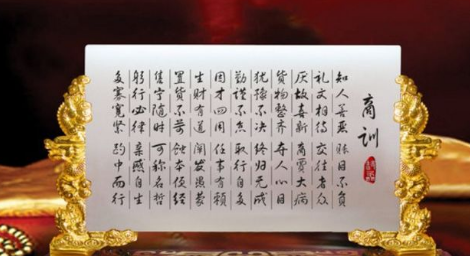 商训
知人善恶 账目不负
礼文相待 交往者众
厌故喜新 商贾大病
货物整齐 夺人心目
犹豫不决 终归无成
勤谨不怠 取行自
因才四 任事有赖
生财有道 阐发愚蒙
置货不苛 蚀本便经
售 随时 可称名哲
躬行必律 亲感自生
多寡宽紧 酌中而行